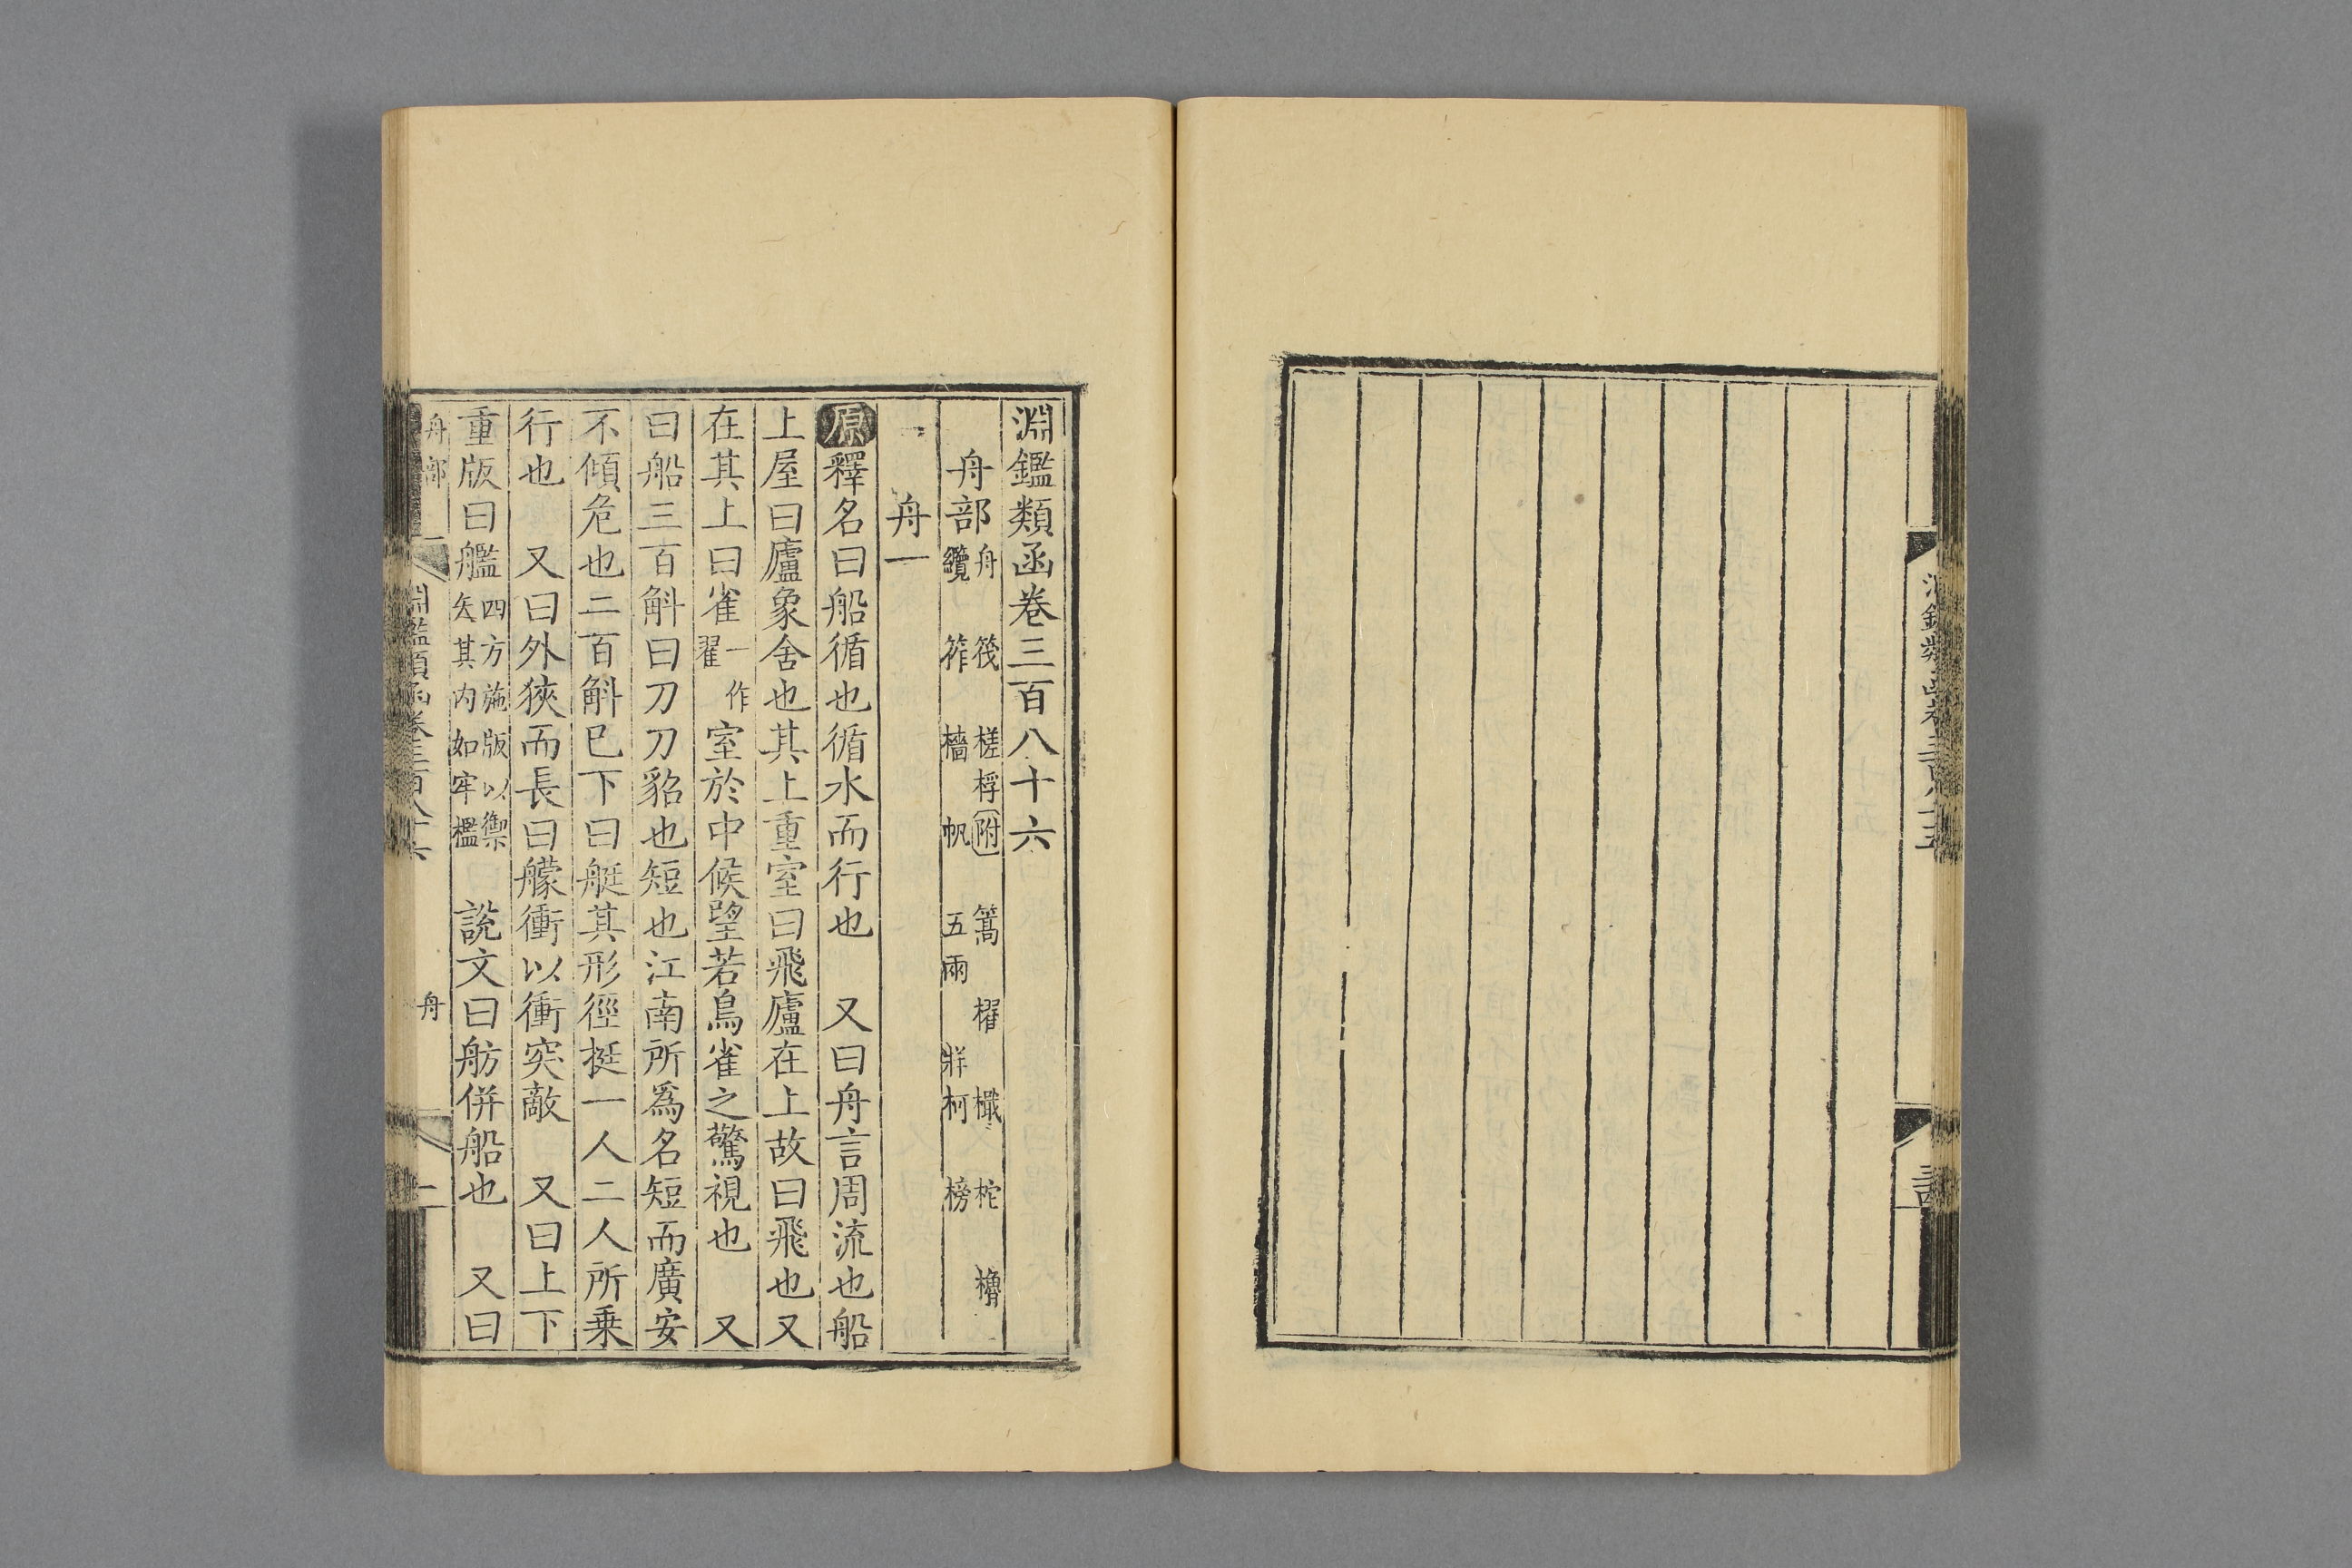 淵鑑類函卷三百八十六
舟部 舟 筏 槎桴附 篙 櫂 檝 柁 櫓
纜 筰 檣 帆 五兩 牂柯 榜
舟一
原釋名曰船循也循水而行也 又曰舟言周流也船
上屋曰廬象舍也其上重室曰飛廬在上故曰飛也又
在其上曰雀一作翟室於中候望若鳥雀之驚視也 又
曰船三百斛曰刀刀貂也短也江南所爲名短而廣安
不傾危也二百斛已下曰艇其形徑挺一人二人所乗
行也 又曰外狹而長曰艨衝以衝突敵 又曰上下
重版曰艦四方施版以禦矢其内如牢檻 說文曰舫併船也 又曰
舟部一
淵鑑類函卷三百八十六
舟
一